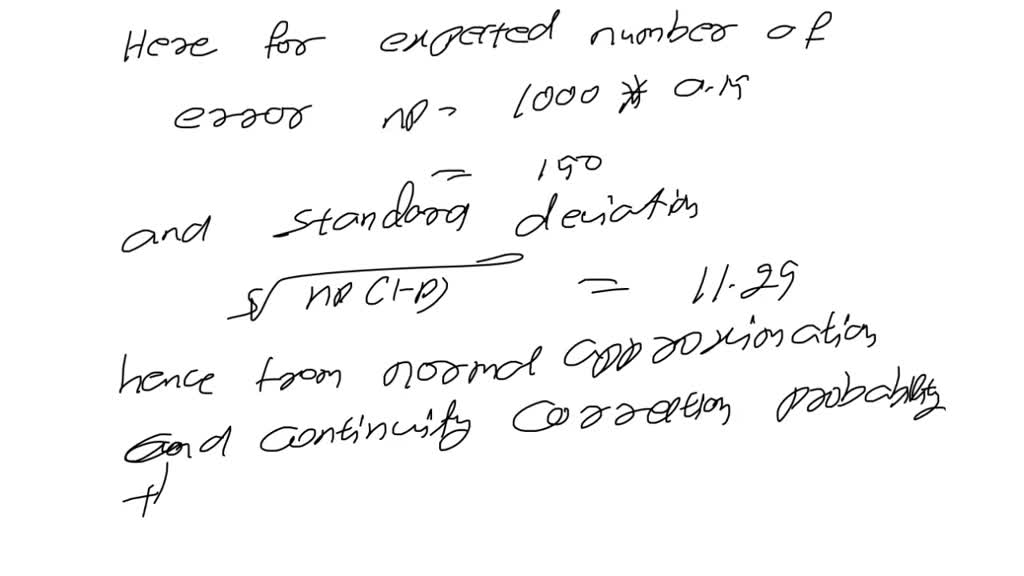 Here for expected number of
error np = 1000 * 0.15
= 150
and standard deviation
√np(1-p) = 11.29
hence from normal approximation
and continuity correction probability